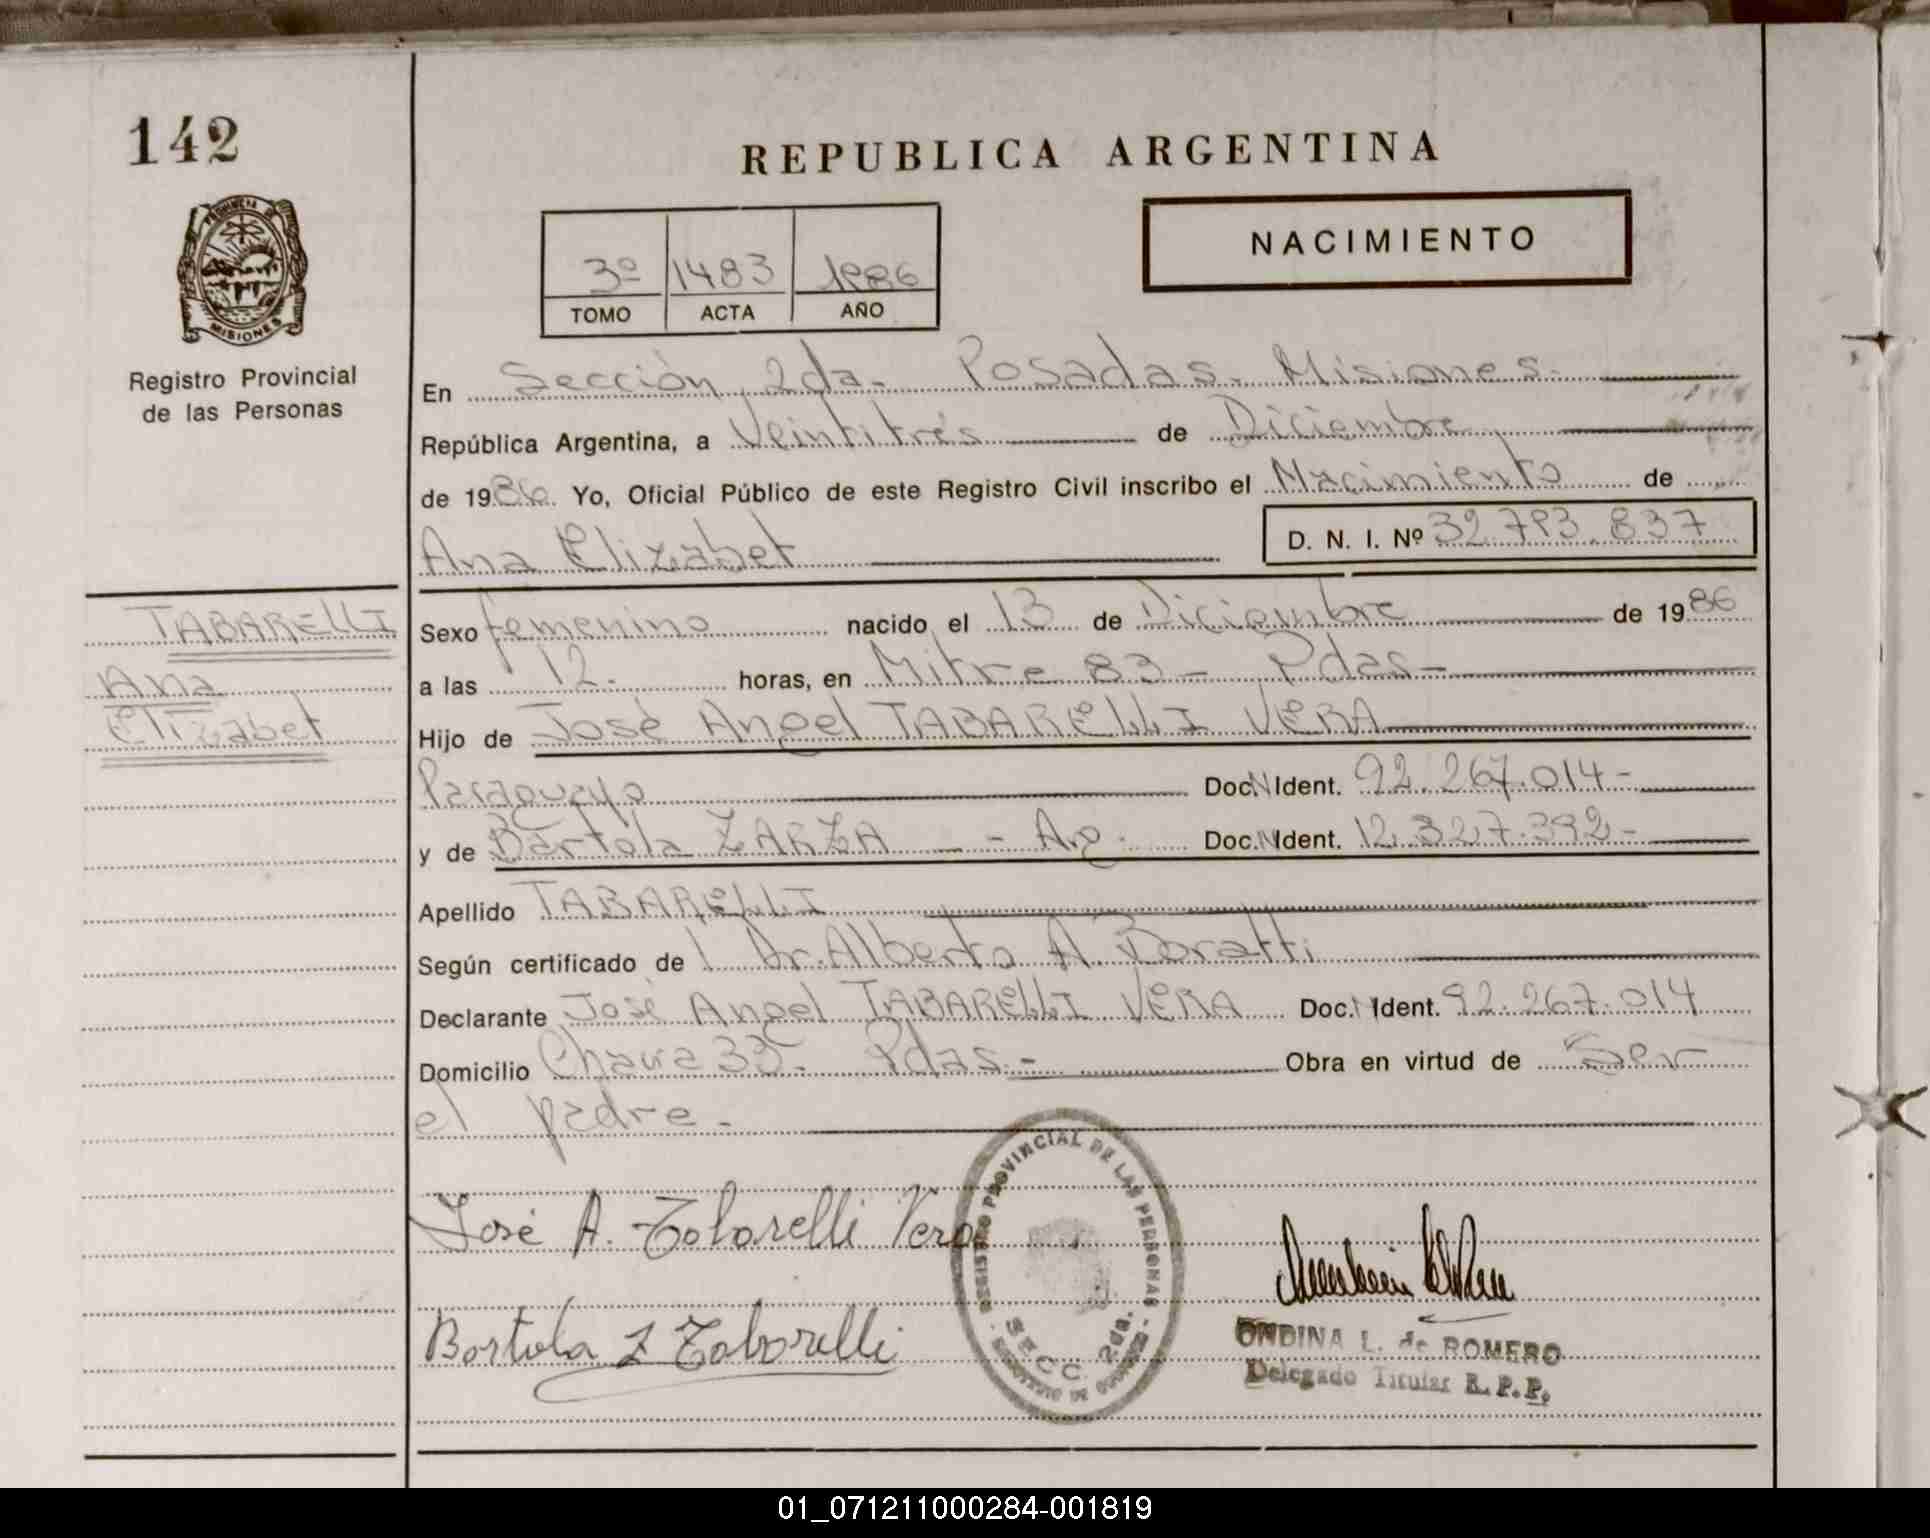 142
REPUBLICA ARGENTINA
PROVINCIA DE
MISIONES
Registro Provincial
de las Personas
3º 1483 1986
TOMO ACTA AÑO
NACIMIENTO
En Sección 2da- Posadas- Misiones-
República Argentina, a Veintitrés de Diciembre
de 1986. Yo, Oficial Público de este Registro Civil inscribo el Nacimiento de
Ana Elizabet D. N. I. Nº 32.793.837
TABARELLI
Ana
Elizabet
Sexo femenino nacido el 13 de Diciembre de 1986
a las 12. horas, en Mitre 83- Pdas-
Hijo de José Angel TABARELLI VERA
Paraguayo Doc.N Ident. 92.267.014-
y de Bartola ZARZA - Arg. Doc.N Ident. 12.327.392-
Apellido TABARELLI
Según certificado de Dr. Alberto A. Boratti
Declarante José Angel TABARELLI VERA Doc.N Ident. 92.267.014
Domicilio Chacra 33. Pdas.- Obra en virtud de Ser
el padre.-
José A. Tabarelli Vera
Bartola Z Tabarelli
REGISTRO PROVINCIAL DE LAS PERSONAS
SECC. 2da.
ONDINA L. de ROMERO
Delegado Titular R.P.P.
01_071211000284-001819